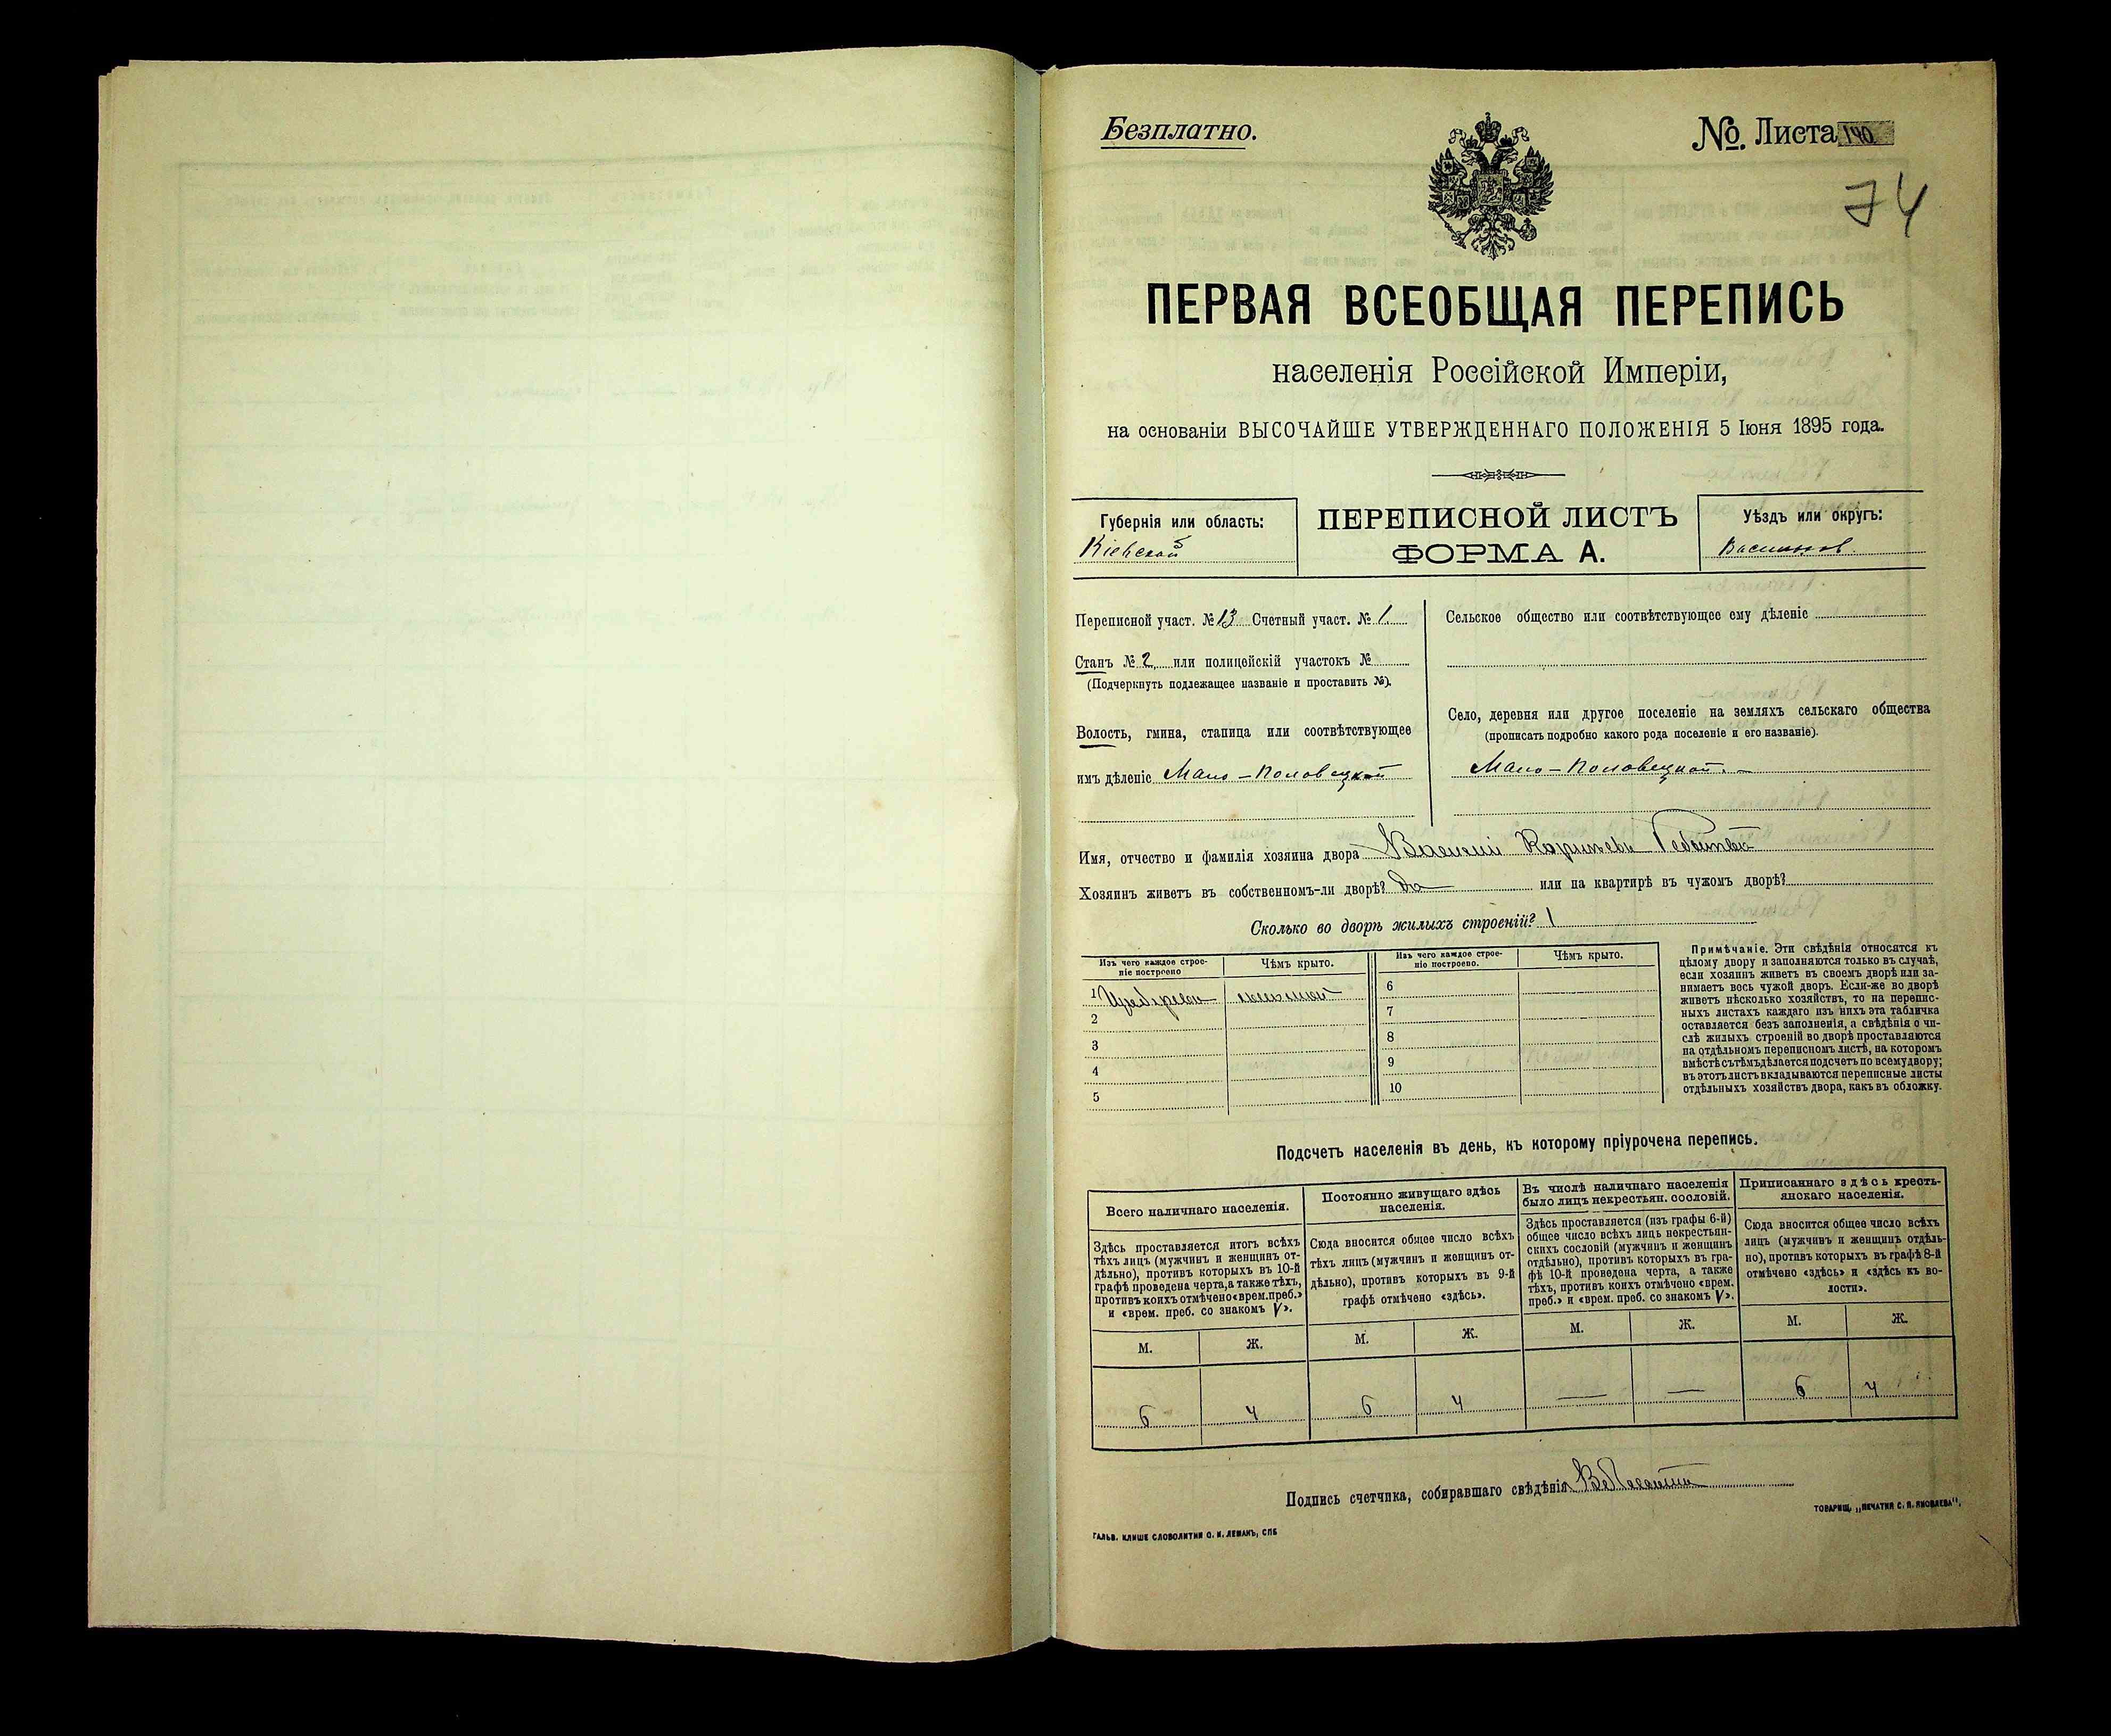 Безплатно.
№. Листа 140
74
ПЕРВАЯ ВСЕОБЩАЯ ПЕРЕПИСЬ
населенія Россійской Имперіи,
на основаніи ВЫСОЧАЙШЕ УТВЕРЖДЕННАГО ПОЛОЖЕНІЯ 5 Іюня 1895 года.
Губернія или область:
Кіевской
ПЕРЕПИСНОЙ ЛИСТЪ
ФОРМА А.
Уѣздъ или округъ:
Васильков.
Переписной участ. № 13 Счетный участ. № 1.
Станъ № 2 или полицейскій участокъ №
(Подчеркнуть подлежащее названіе и проставить №).
Волость, гмина, станица или соотвѣтствующее
имъ дѣленіе Мало-Половецкой
Сельское общество или соотвѣтствующее ему дѣленіе
Село, деревня или другое поселеніе на земляхъ сельскаго общества
(прописать подробно какого рода поселеніе и его названіе).
Мало-Половецкой.
Имя, отчество и фамилія хозяина двора Василій
Хозяинъ живетъ въ собственномъ-ли дворѣ? да или на квартирѣ въ чужомъ дворѣ?
Сколько во дворѣ жилыхъ строеній? 1
Изъ чего каждое строе-
ніе построено
Чѣмъ крыто.
Изъ чего каждое строе-
ніе построено.
Чѣмъ крыто.
1 соломой
2
3
4
5
6
7
8
9
10
Примѣчаніе. Эти свѣдѣнія относятся къ
цѣлому двору и заполняются только въ случаѣ,
если хозяинъ живетъ въ своемъ дворѣ или за-
нимаетъ весь чужой дворъ. Если-же во дворѣ
живетъ нѣсколько хозяйствъ, то на перепис-
ныхъ листахъ каждаго изъ нихъ эта табличка
оставляется безъ заполненія, а свѣдѣнія о чи-
слѣ жилыхъ строеній во дворѣ проставляются
на отдѣльномъ переписномъ листѣ, на которомъ
вмѣстѣ съ тѣмъ дѣлается подсчетъ по всему двору;
въ этотъ листъ вкладываются переписные листы
отдѣльныхъ хозяйствъ двора, какъ въ обложку.
Подсчетъ населенія въ день, къ которому пріурочена перепись.
Всего наличнаго населенія.
Здѣсь проставляется итогъ всѣхъ
тѣхъ лицъ (мужчинъ и женщинъ от-
дѣльно), противъ которыхъ въ 10-й
графѣ проведена черта, а также тѣхъ,
противъ коихъ отмѣчено «врем. преб.»
и «врем. преб. со знакомъ V».
Постоянно живущаго здѣсь
населенія.
Сюда вносится общее число всѣхъ
тѣхъ лицъ (мужчинъ и женщинъ от-
дѣльно), противъ которыхъ въ 9-й
графѣ отмѣчено «здѣсь».
Въ числѣ наличнаго населенія
было лицъ некрестьян. сословій.
Здѣсь проставляется (изъ графы 6-й)
общее число всѣхъ лицъ некрестьян-
скихъ сословій (мужчинъ и женщинъ
отдѣльно), противъ которыхъ въ гра-
фѣ 10-й проведена черта, а также
тѣхъ, противъ коихъ отмѣчено «врем.
преб.» и «врем. преб. со знакомъ V».
Приписаннаго здѣсь кресть-
янскаго населенія.
Сюда вносится общее число всѣхъ
лицъ (мужчинъ и женщинъ отдѣль-
но), противъ которыхъ въ графѣ 8-й
отмѣчено «здѣсь» и «здѣсь къ во-
лости».
М. Ж. М. Ж. М. Ж. М. Ж.
6 4 6 4 — — 6 4
Подпись счетчика, собиравшаго свѣдѣнія
ГАЛЬВ. КЛИШЕ СЛОВОЛИТНИ О. И. ЛЕМАНЪ, СПБ
ТОВАРИЩ. „ПЕЧАТНЯ С. П. ЯКОВЛЕВА“.